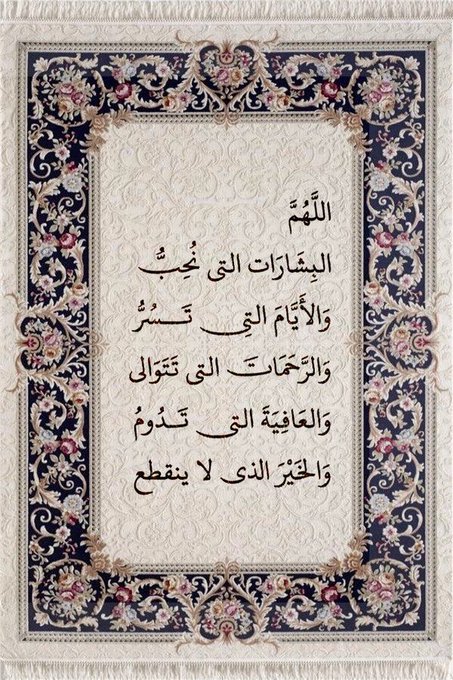 اللَّهُمَّ
البِشَارَات التى نُحِبُّ
وَالأَيَّامَ التِي تَـــسُرُّ
وَالرَّحَمَاتَ التى تَتَوَالى
وَالعَافِيَةَ التـى تَـدُومُ
وَالخَيْرَ الذى لا ينقطع